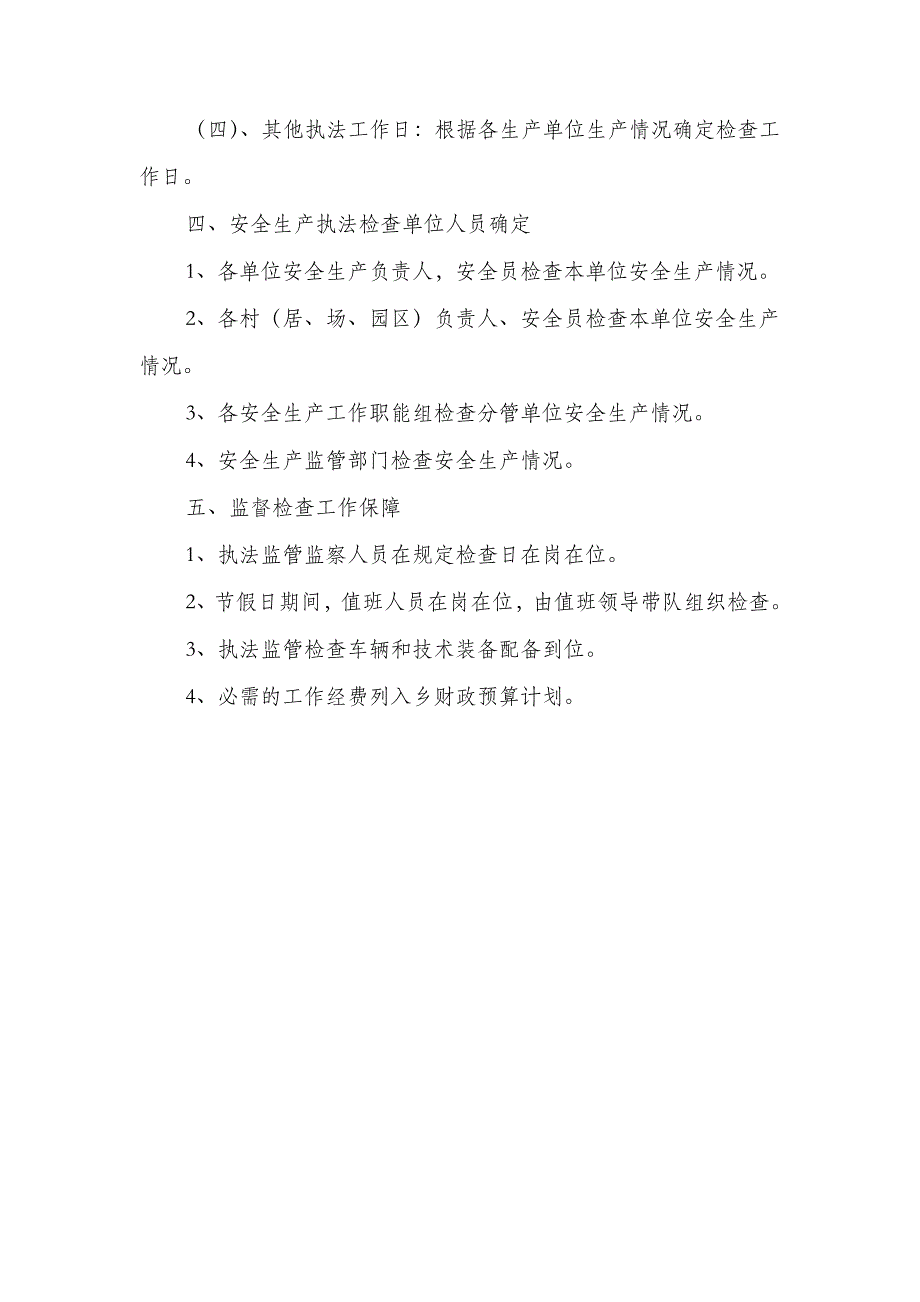 （四）、其他执法工作日：根据各生产单位生产情况确定检查工
作日。
四、安全生产执法检查单位人员确定
1、各单位安全生产负责人，安全员检查本单位安全生产情况。
2、各村（居、场、园区）负责人、安全员检查本单位安全生产
情况。
3、各安全生产工作职能组检查分管单位安全生产情况。
4、安全生产监管部门检查安全生产情况。
五、监督检查工作保障
1、执法监管监察人员在规定检查日在岗在位。
2、节假日期间，值班人员在岗在位，由值班领导带队组织检查。
3、执法监管检查车辆和技术装备配备到位。
4、必需的工作经费列入乡财政预算计划。